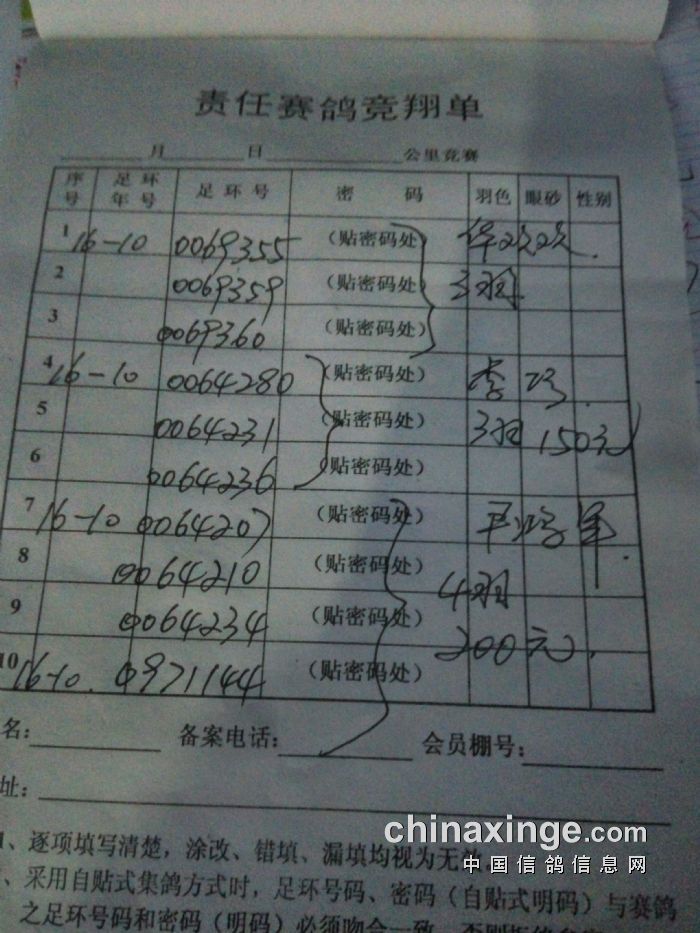 责任赛鸽竞翔单
月 日 公里竞赛
序号 足环年号 足环号 密 码 羽色 眼砂 性别
1 16-10 0069355 (贴密码处)
2 0069359 (贴密码处) 3羽
3 0069360 (贴密码处)
4 16-10 0064280 (贴密码处) 李巧
5 0064231 (贴密码处) 3羽 150元
6 0064236 (贴密码处)
7 16-10 0064207 (贴密码处)
8 0064210 (贴密码处) 4羽
9 0064234 (贴密码处) 200元
10 16-10 0971144 (贴密码处)
名: 备案电话: 会员棚号:
址:
1、逐项填写清楚，涂改、错填、漏填均视为无效。
、采用自贴式集鸽方式时，足环号码、密码（自贴式明码）与赛鸽
之足环号码和密码（明码）必须吻合一致，否则
chinaxinge.com
中国信鸽信息网